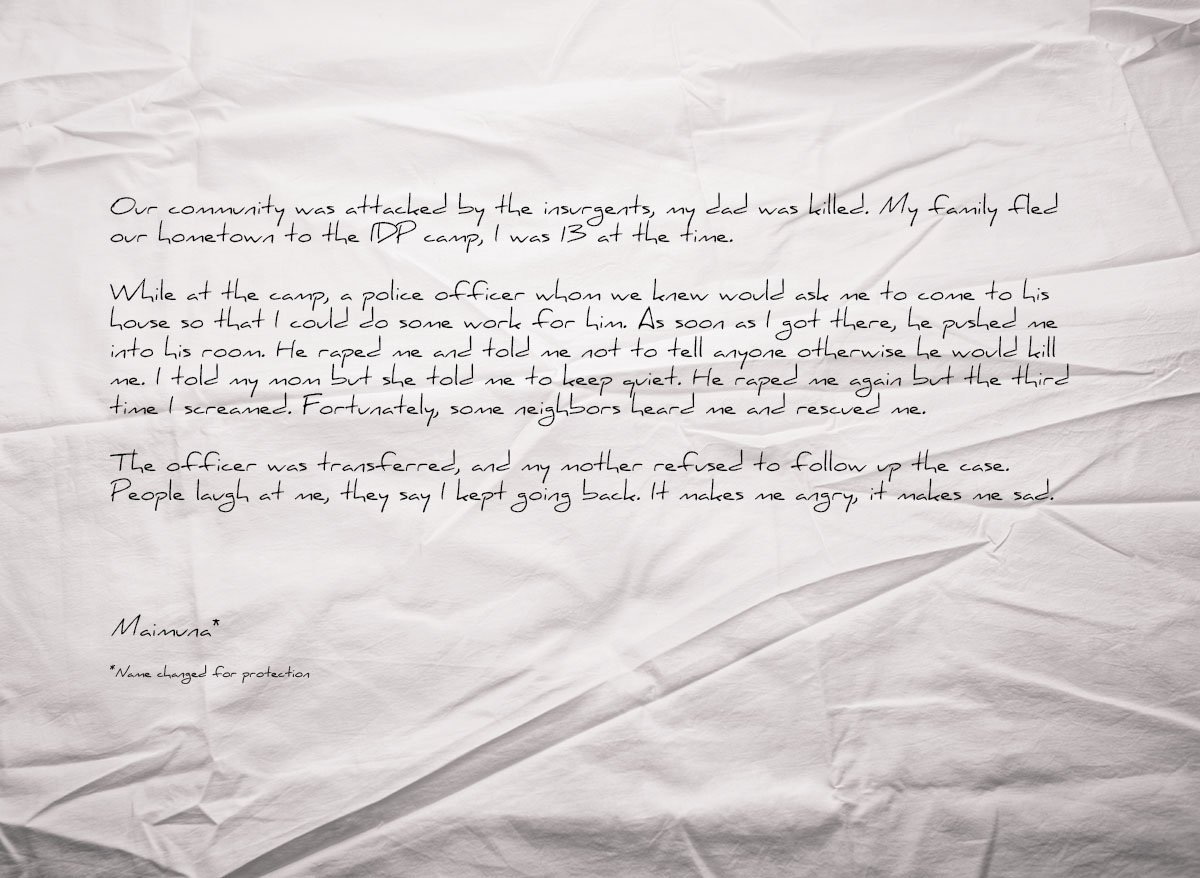 Our community was attacked by the insurgents, my dad was killed. My family fled
our hometown to the IDP camp, I was 13 at the time.
While at the camp, a police officer whom we knew would ask me to come to his
house so that I could do some work for him. As soon as I got there, he pushed me
into his room. He raped me and told me not to tell anyone otherwise he would kill
me. I told my mom but she told me to keep quiet. He raped me again but the third
time I screamed. Fortunately, some neighbors heard me and rescued me.
The officer was transferred, and my mother refused to follow up the case.
People laugh at me, they say I kept going back. It makes me angry, it makes me sad.
Maimuna*
*Name changed for protection